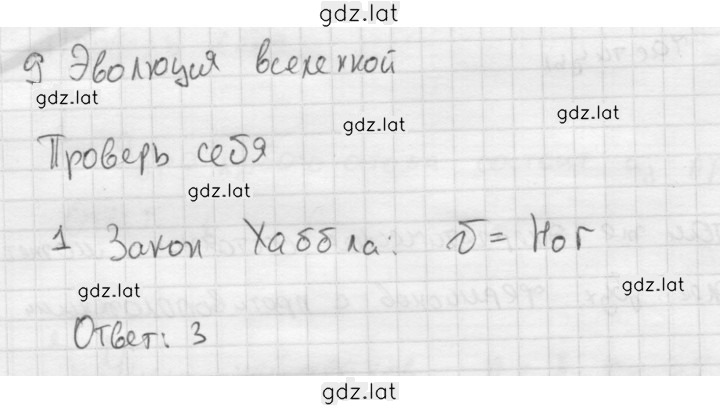 gdz.lat
9 Эволюция вселенной
gdz.lat
gdz.lat
gdz.lat
Проверь себя
gdz.lat
1 Закон Хаббла: v = H₀r
gdz.lat
gdz.lat
Ответ: 3
gdz.lat